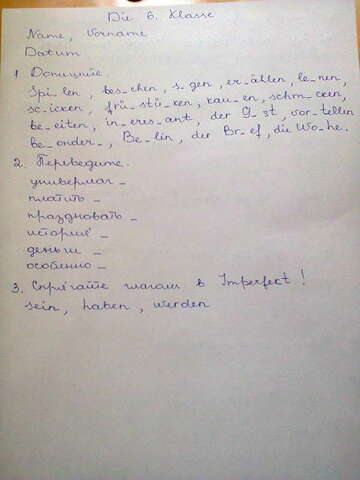 Die 6. Klasse
Name, Vorname
Datum
1 Допищите.
Spi_len, bes_chen, s_gen, er_ällen, le_nen,
sc_icken, frü_stü_ken, kau_en, schm_cken,
be_eiten, in_eres_ant, der G_st, vor_tellen
be_onder_, Be_lin, der Br_ef, die Wo_he.
2. Переведите.
универмаг _
платить _
праздновать _
история _
деньги _
особенно _
3. Спрягайте глаголы в Imperfect!
sein, haben, werden